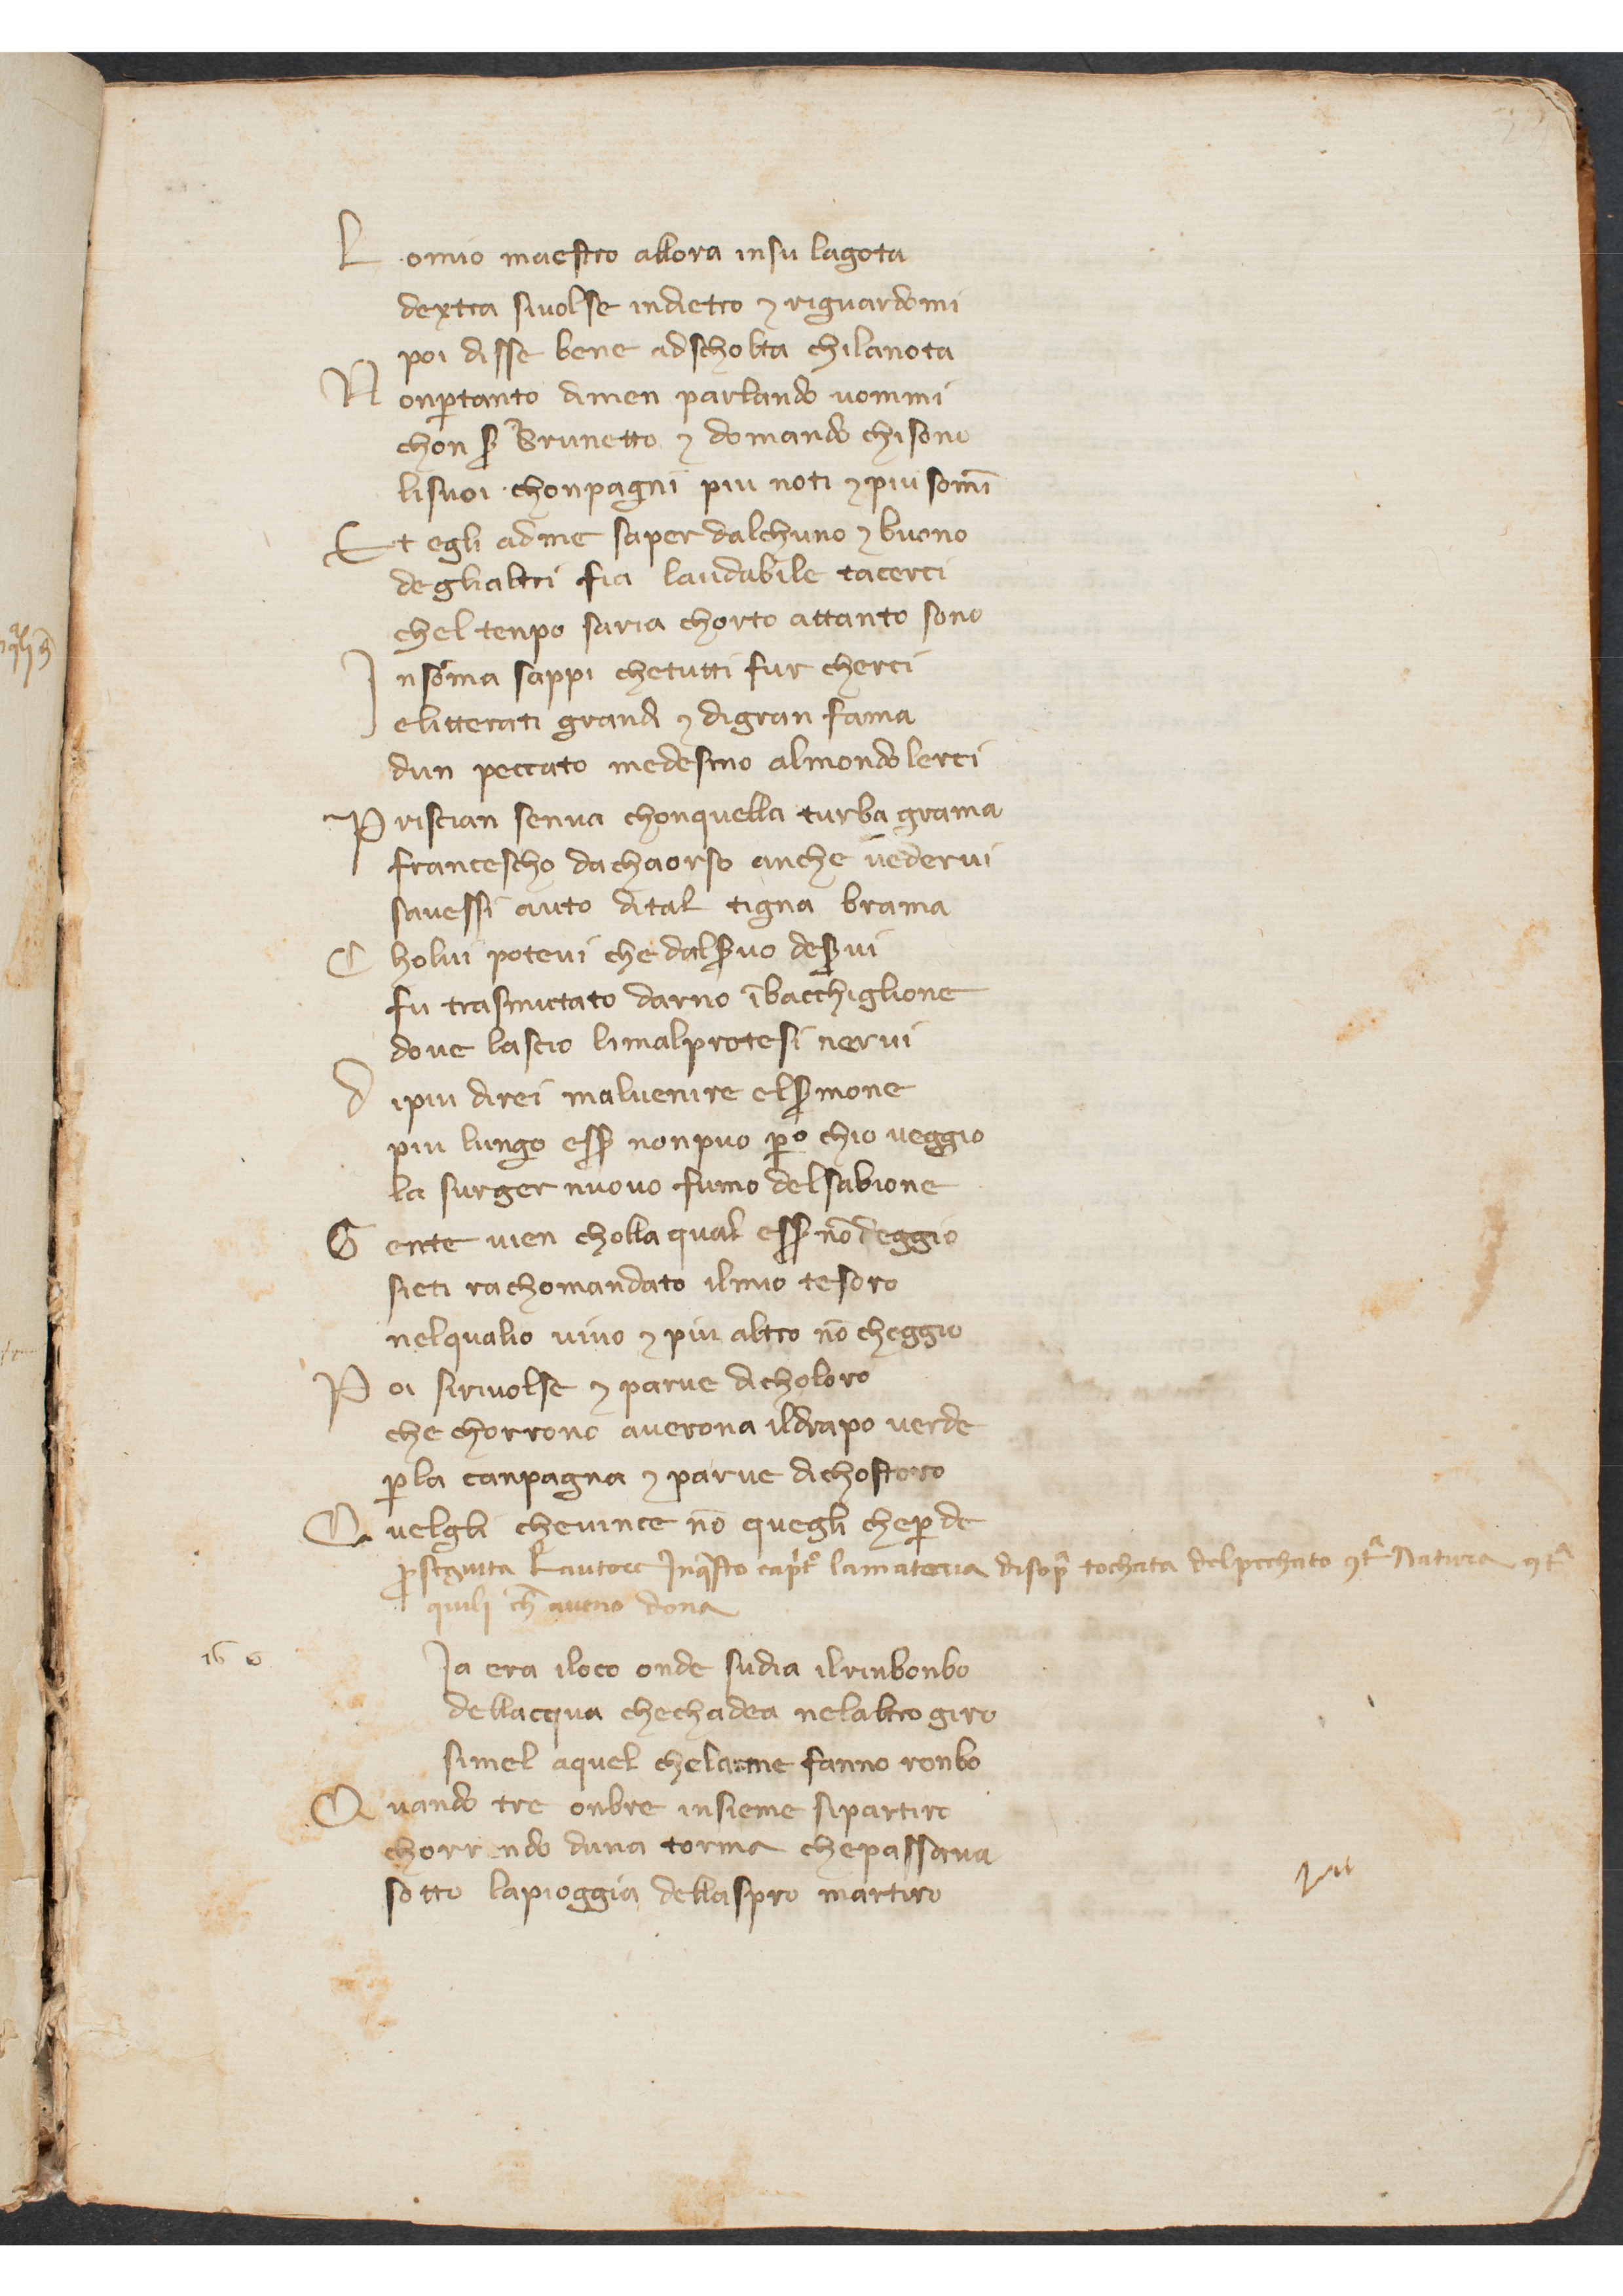 L omio maestro allora insu lagota
dextra siuolse indietro ⁊ riguardomi
poi disse bene adscholta chilanota
N onꝑtanto dimen parlando uommi
chon ẜ Brunetto ⁊ domando chisono
lisuoi chonpagni piu noti ⁊ piu som̄i
E t egli adme saper dalchuno ⁊ buono
deglialtri fia laudabile tacerci
chel tenpo saria chorto attanto sono
I nsōma sappi chetutti fur cherci
elitterati grandi ⁊ digran fama
dun peccato medesmo almondo lerci
P riscian senua chonquella turba grama
francescho dachaorso anche uedervi
sauessi auto dital tigna brama
C holui poteui che dalẜuo deẜui
fu trasmutato darno ībacchiglione
doue lascio limalprotesi nerui
D ipiu direi maluenire elẜmone
piu lungo esẜ nonpuo ꝑo chio ueggio
la surger nuouo fumo delsabione
G ente uien cholla qual esẜ nō deggio
sieti rachomandato ilmio tesoro
nelqualio uiuo ⁊ piu altro nō cheggio
P oi siriuolse ⁊ parue dicholoro
che chorrono auerona ildrapo uerde
ꝑla canpagna ⁊ parue dichostoro
Q uelgli cheuince nō quegli cheꝑde
ꝓseguita lautore Inq̄sto capit° lamateria disopᵃ tochata delpechato ꝯtᵃ Natura ꝯtᵃ
quili ch̄ aueno dona
16
Ja era iloco onde sudia ilrinbonbo
dellacqua chechadea nelaltro giro
simel aquel chelarme fanno ronbo
Q uando tre onbre insieme sipartiro
chorrendo duna torma chepassaua
sotto lapioggia dellaspro martiro